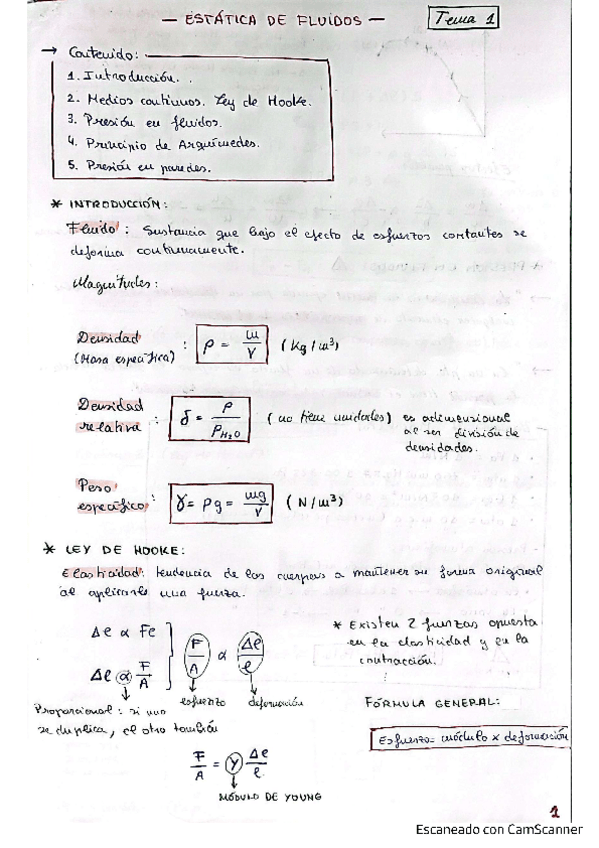 — ESTÁTICA DE FLUIDOS —
Tema 1
→ Contenido:
1. Introducción.
2. Medios continuos. Ley de Hooke.
3. Presión en fluidos.
4. Principio de Arquímedes.
5. Presión en paredes.
* INTRODUCCIÓN:
Fluido: Sustancia que bajo el efecto de esfuerzos constantes se
deforma continuamente.
Magnitudes:
Densidad
(Masa específica) : ρ = m/V (Kg/m³)
Densidad
relativa : δ = ρ/ρH₂O (no tiene unidades) es adimensional
al ser división de
densidades.
Peso
específico : γ = ρg = mg/V (N/m³)
* LEY DE HOOKE:
Elasticidad: tendencia de los cuerpos a mantener su forma original
al aplicarle una fuerza.
Δl α Fe
Δl α F/A
F/A α Δl/l
* Existen 2 fuerzas opuesta
en la elasticidad y en la
contracción.
esfuerzo deformación
Proporcional: si uno
se duplica, el otro también
FÓRMULA GENERAL:
Esfuerzo = módulo x deformación
F/A = Y Δl/l
MÓDULO DE YOUNG
1
Escaneado con CamScanner